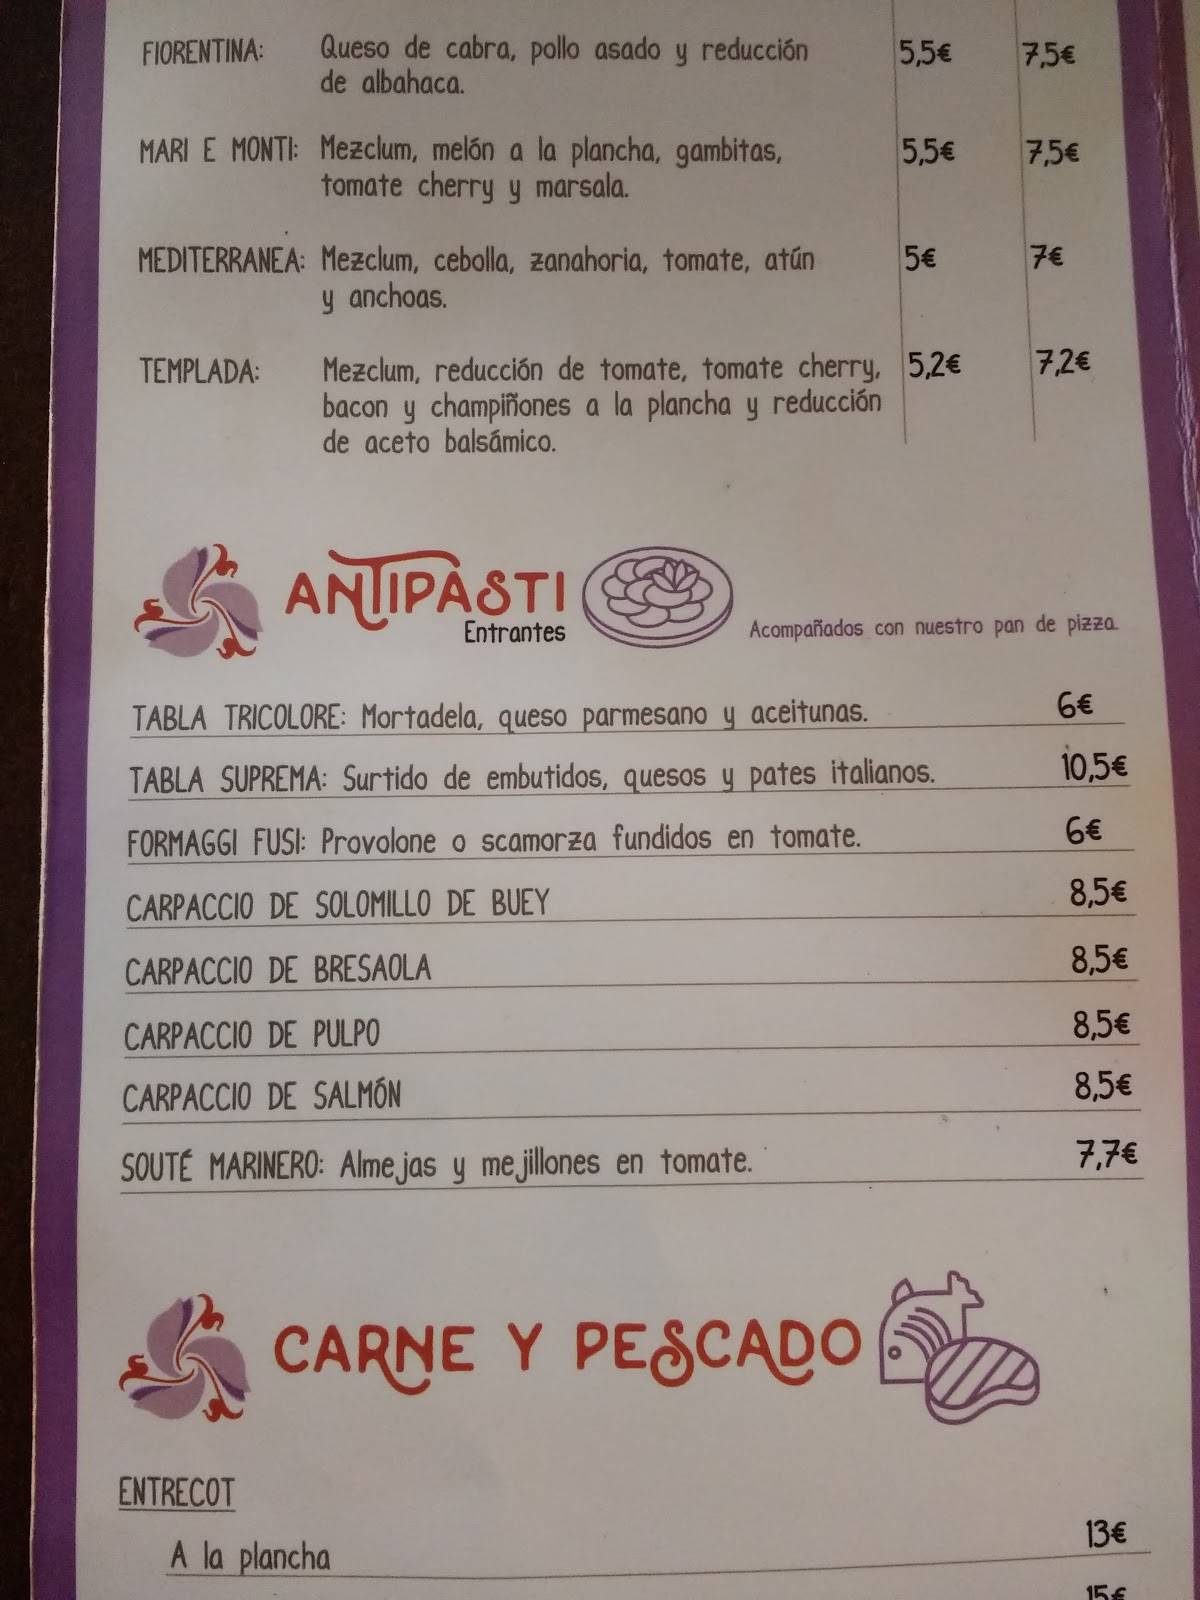 FIORENTINA: Queso de cabra, pollo asado y reducción 5,5€ 7,5€
de albahaca.
MARI E MONTI: Mezclum, melón a la plancha, gambitas, 5,5€ 7,5€
tomate cherry y marsala.
MEDITERRANEA: Mezclum, cebolla, zanahoria, tomate, atún 5€ 7€
y anchoas.
TEMPLADA: Mezclum, reducción de tomate, tomate cherry, 5,2€ 7,2€
bacon y champiñones a la plancha y reducción
de aceto balsámico.
ANTIPASTI
Entrantes
Acompañados con nuestro pan de pizza.
TABLA TRICOLORE: Mortadela, queso parmesano y aceitunas. 6€
TABLA SUPREMA: Surtido de embutidos, quesos y pates italianos. 10,5€
FORMAGGI FUSI: Provolone o scamorza fundidos en tomate. 6€
CARPACCIO DE SOLOMILLO DE BUEY 8,5€
CARPACCIO DE BRESAOLA 8,5€
CARPACCIO DE PULPO 8,5€
CARPACCIO DE SALMÓN 8,5€
SOUTÉ MARINERO: Almejas y mejillones en tomate. 7,7€
CARNE Y PESCADO
ENTRECOT
A la plancha 13€
15€